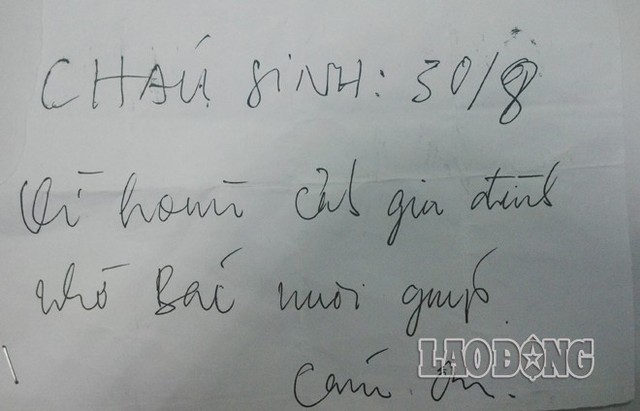 CHÁU SINH: 30/8
Vì hoàn cảnh gia đình
nhờ Bác nuôi giúp.
Cảm ơn.
LAO ĐỘNG